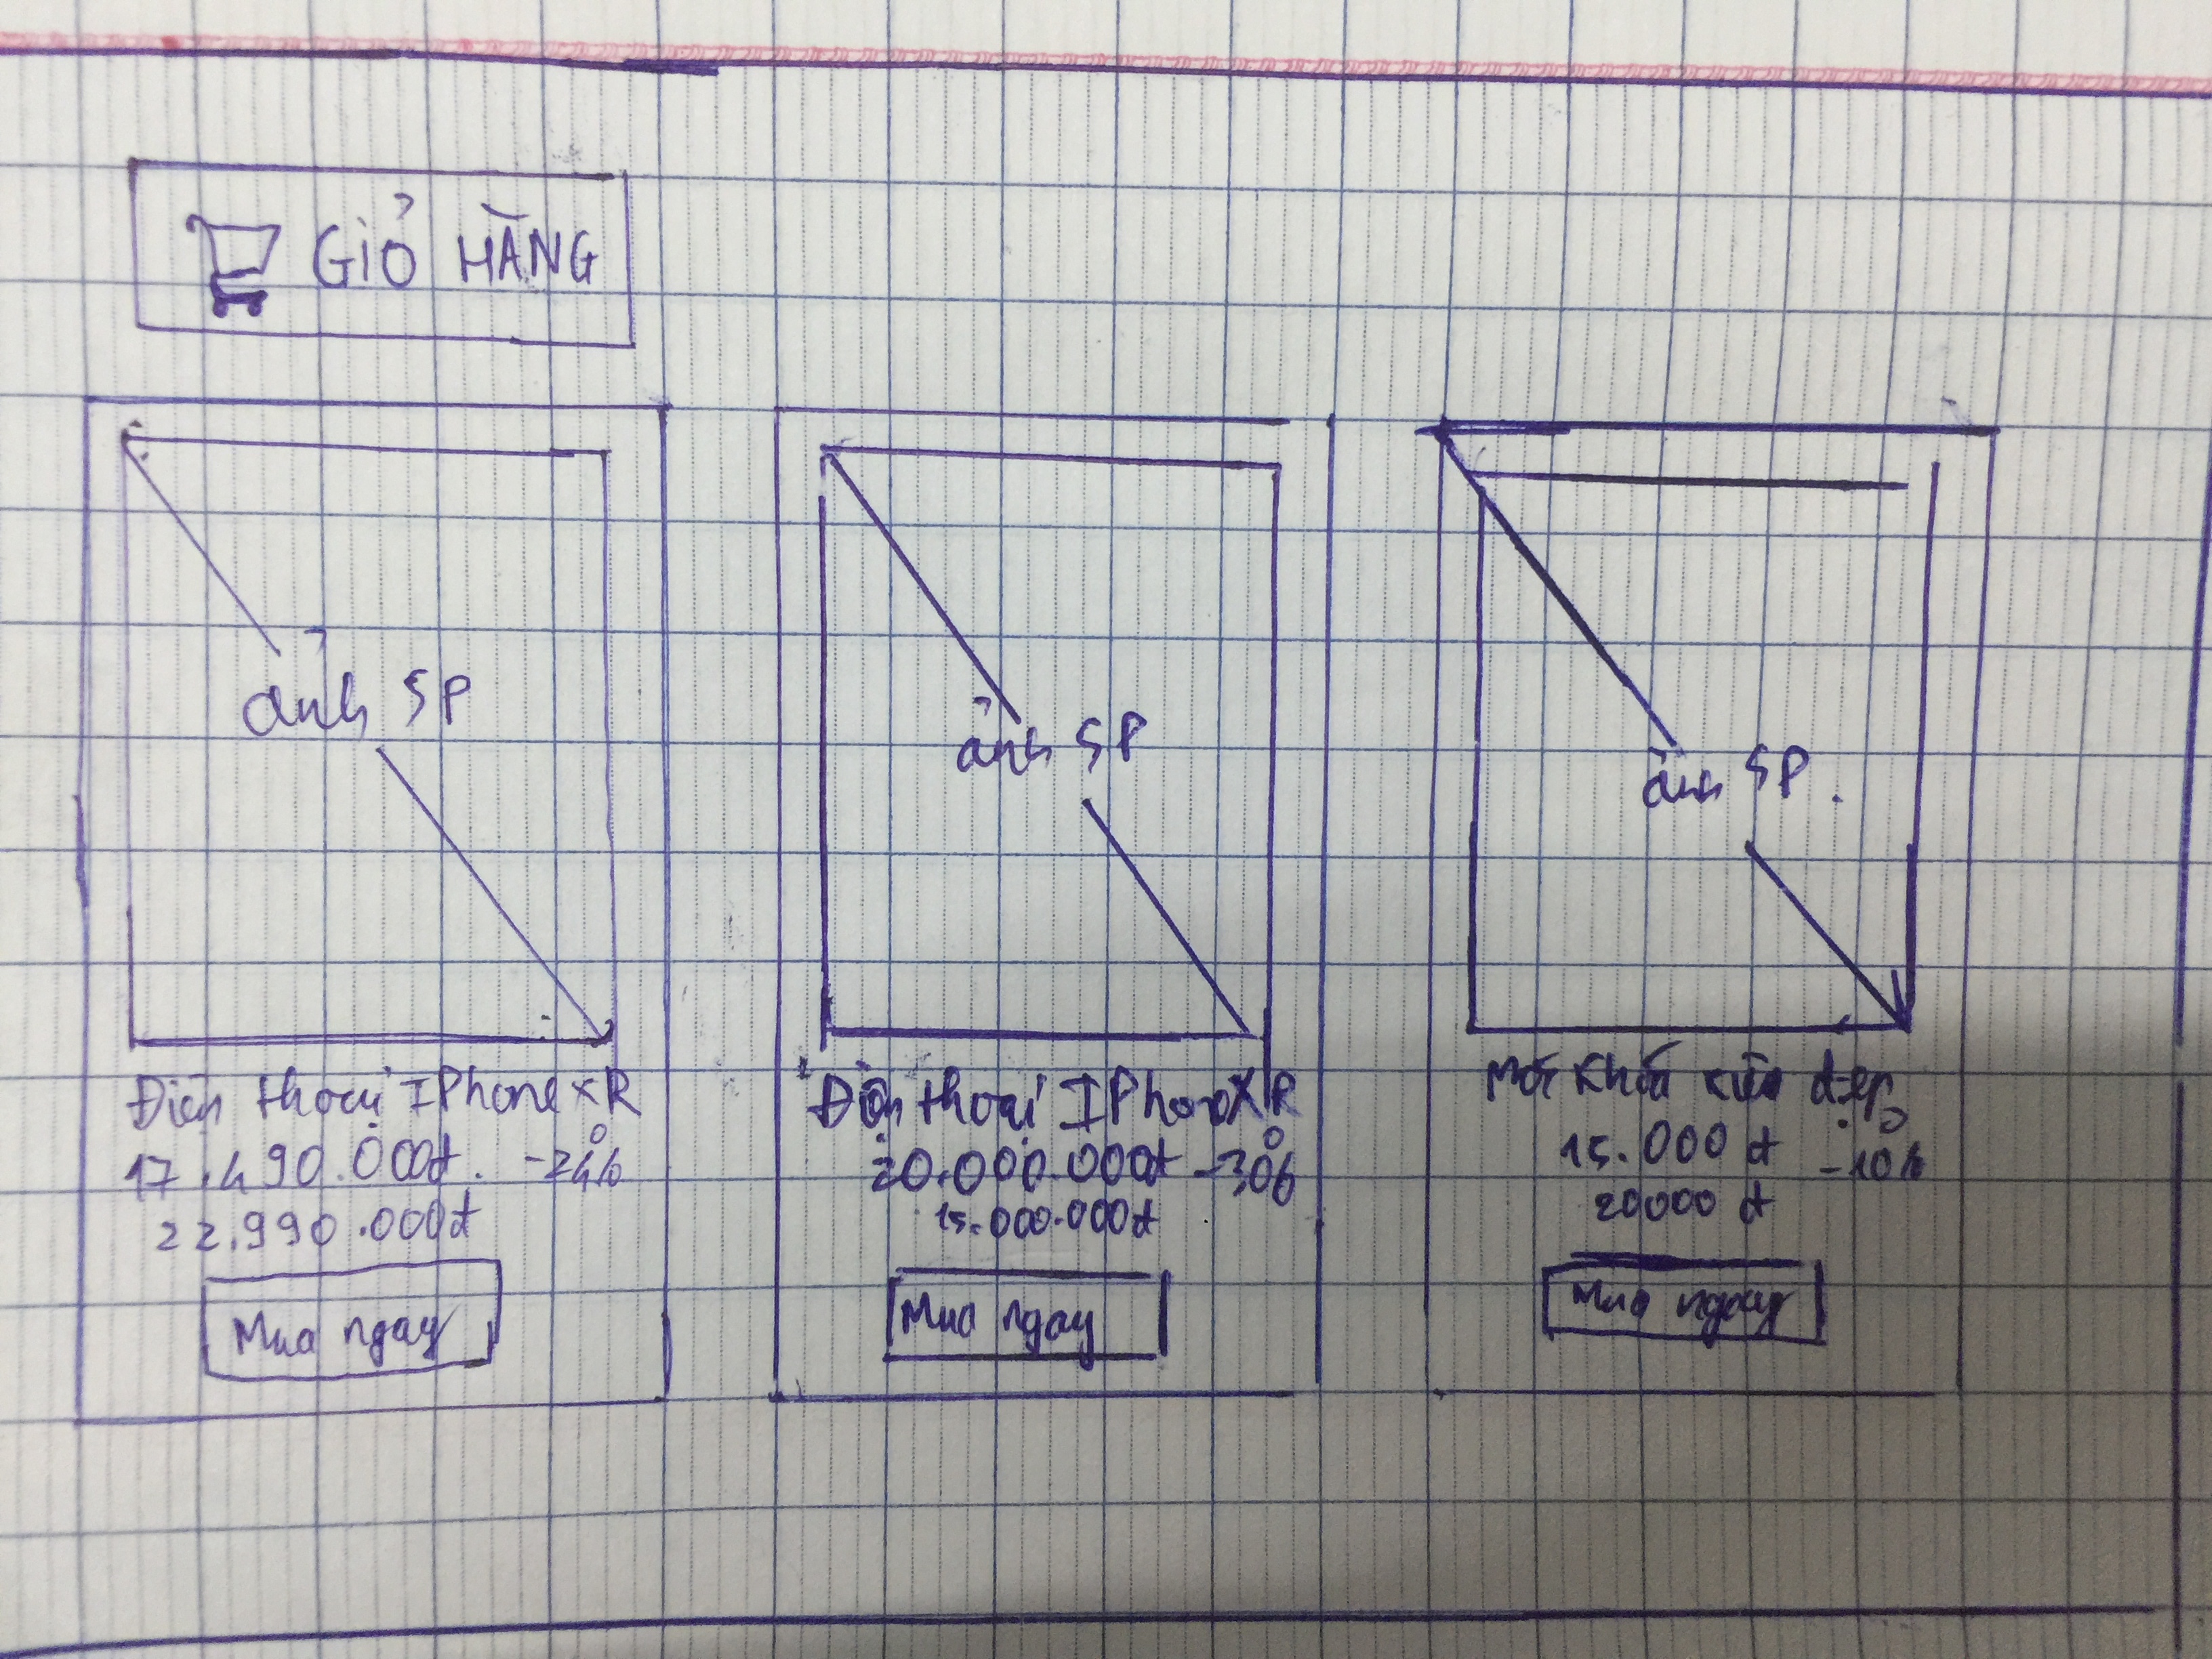 GIỎ HÀNG
ảnh SP
Điện thoại IPhone XR
17.490.000đ. -24%
22.990.000đ
Mua ngay
ảnh SP
Điện thoại IPhone XR
20.000.000đ -30%
15.000.000đ
Mua ngay
ảnh SP.
Móc Khoá kiểu đẹp
15.000 đ -10%
20000 đ
Mua ngay